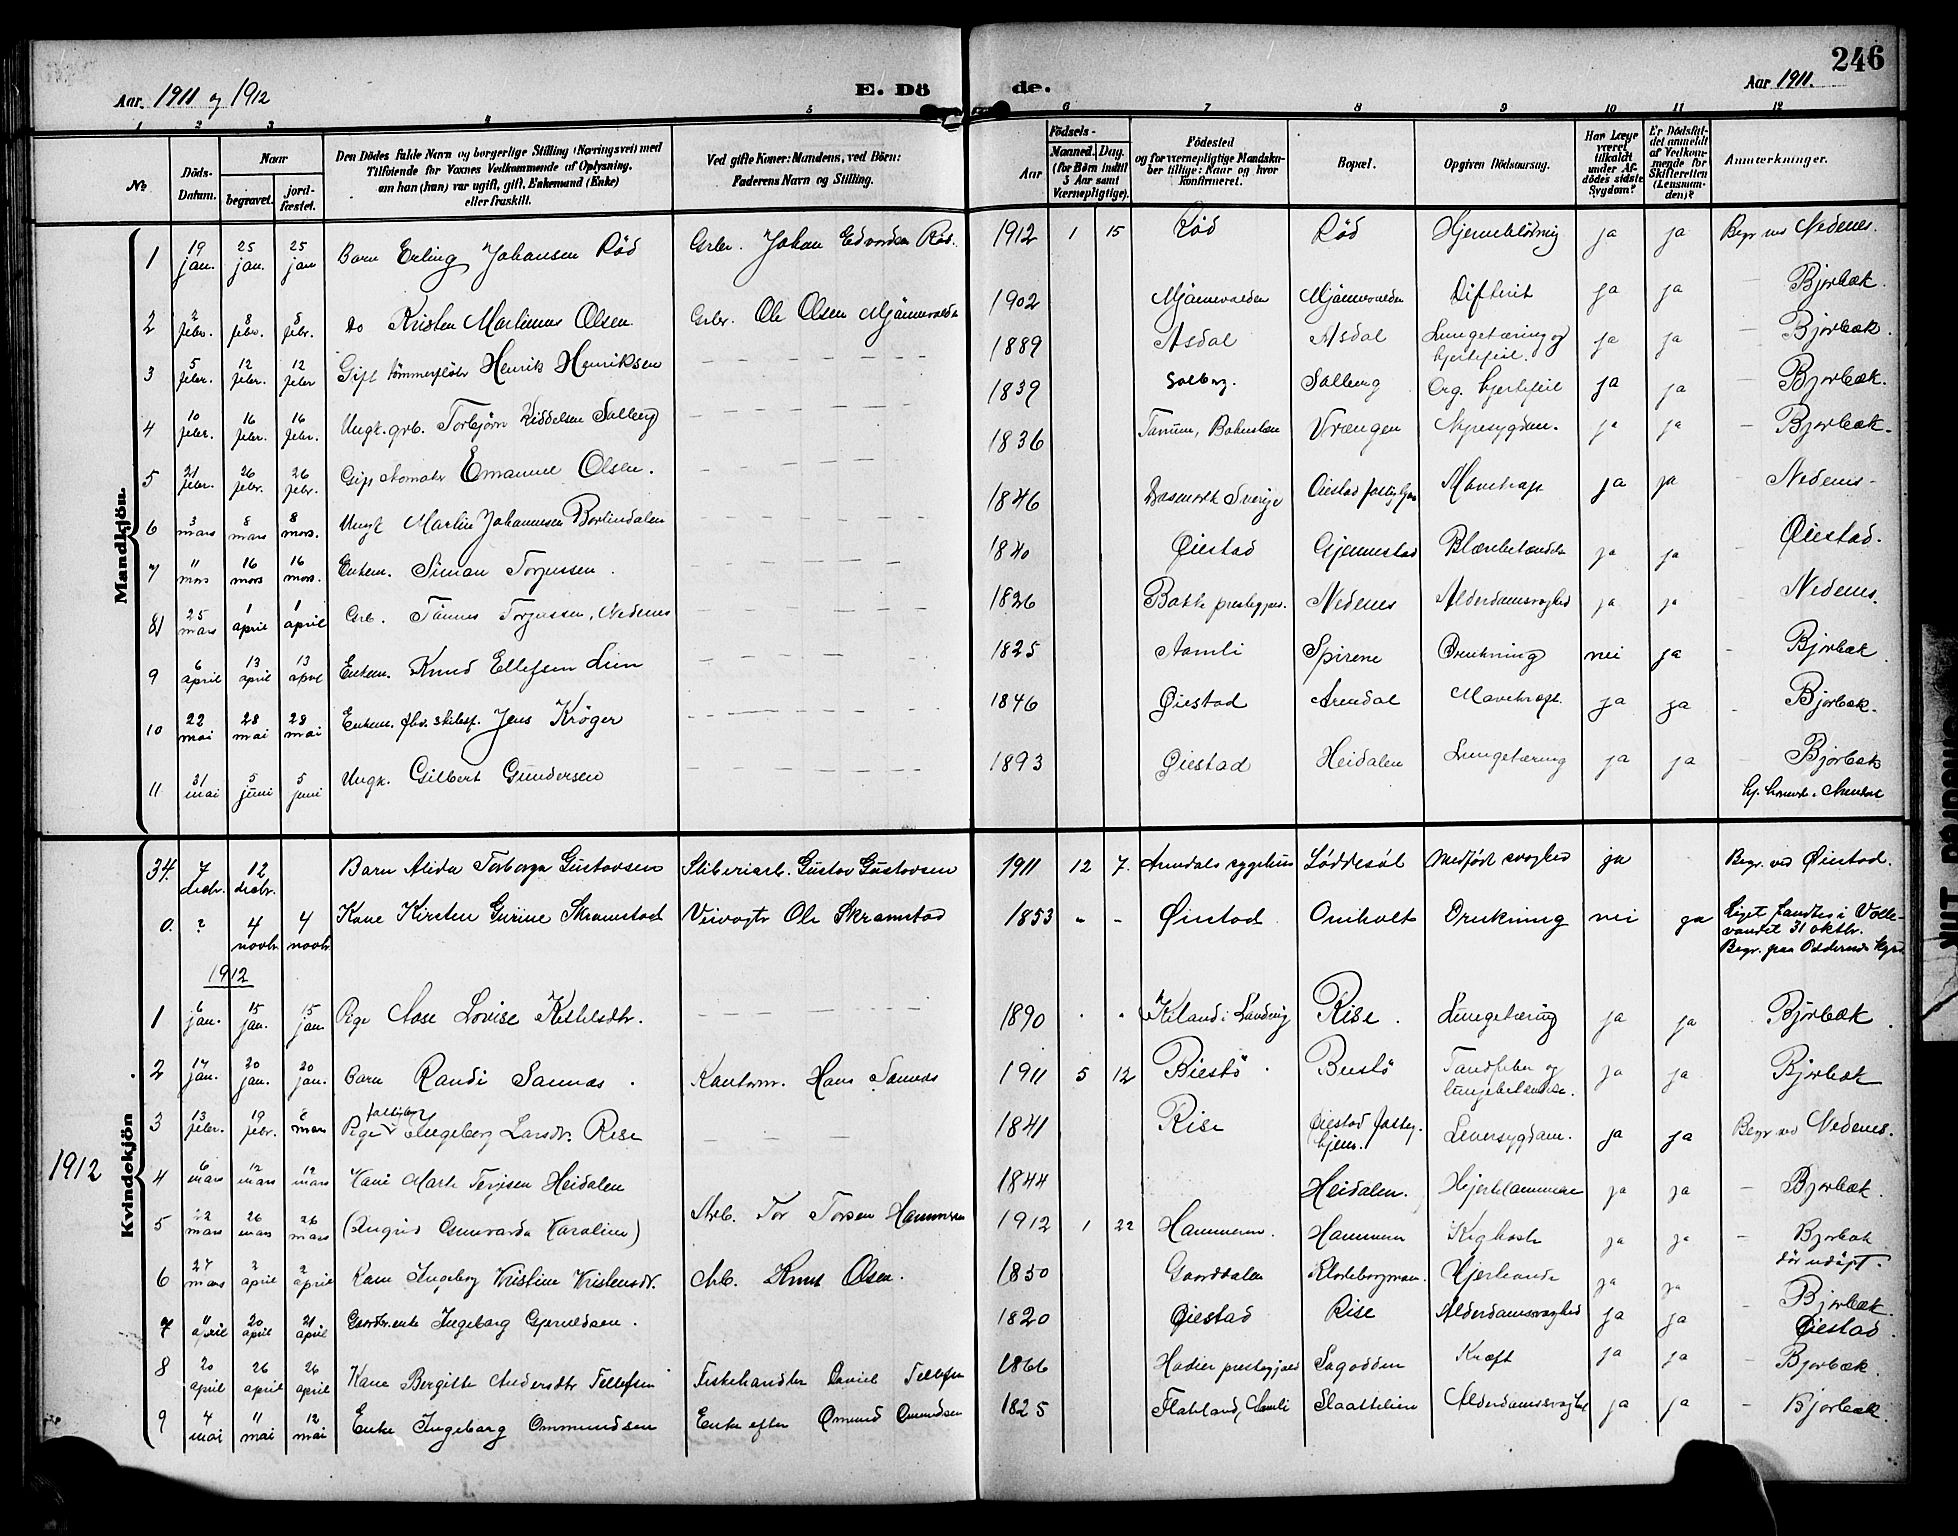 246
Aar. 1911 og 1912
E. Dö
de.
Aar 1911.
1 2 3 4 5 6 7 8 9 10 11 12
No.
Döds-Datum.
Naar
begravet.
jord-fæstet.
Den Dödes fulde Navn og borgerlige Stilling (Næringsvei) med
Tilföiende for Voxnes Vedkommende af Oplysning,
om han (hun) var ugift, gift, Enkemand (Enke)
eller fraskilt.
Ved gifte Koner: Mandens, ved Börn:
Faderens Navn og Stilling.
Födsels-
Aar
Maaned. Dag.
(for Börn indtil
5 Aar samt
Værnepligtige).
Födested
og for værnepligtige Mandska-
ber tillige: Naar og hvor
konfirmeret.
Bopæl.
Opgiven Dödsaarsag.
Har Læge
været
tilkaldt
under Af-
dödes sidste
Sygdom?
Er Dödsfal-
det anmeldt
af Vedkom-
mende for
Skifteretten
(Lensman-
den)?
Anmærkninger.
Mandkjön.
1 19 jan. 25 jan. 25 jan Barn Erling Johansen Röd Grbr. Johan Edvardsen Röd. 1912 1 15 Röd Röd Hjerneblödning ja ja Begr ved Nedenes.
2 2 febr. 8 febr. 8 febr. do Kristen Martinius Olsen Grbr. Ole Olsen Mjönnevalden 1902 Mjönnevalden Mjönnevalden Difterit ja ja — Bjorbæk.
3 5 febr. 12 febr. 12 febr Gift tömmerfløter Henrik Henriksen 1889 Asdal Asdal Lungetæring og hjertefeil. ja ja — Bjorbæk.
4 10 febr. 16 febr. 16 febr. Ungk. grb. Torbjörn Kiddelsen Solberg 1839 Solberg. Solberg Org. hjertefeil ja ja — Bjorbæk.
5 21 febr. 26 febr. 26 febr. Gift Emanuel Olsen. 1836 Tanum, Bohuslæn Vrængen Nyresygdom. ja ja — Bjorbæk.
6 3 mars 8 mars 8 mars. Ungk Martin Johannesen Borlindalen 1846 Sverige Øiestad fattighjem Mavekræft ja ja — Nedenes
7 11 mars 16 mars 16 mars. Enkem. Simon Torjussen. 1840 Øiestad Gjennestad Blærebetændelse ja ja — Øiestad.
8 25 mars 1 april 1 april Grb. Tönnes Torjussen, Nedenes 1826 prestegj. Nedenes Alderdomsvaghed ja ja — Nedenes.
9 6 april 13 april 13 april Enkem. Knud Ellefsen Lien 1825 Aamli Spirene Drukning nei ja — Bjorbæk
10 22 mai 28 mai 28 mai Enkem. fhv. skibsf. Jens Kröger 1846 Øiestad Arendal Mavekræft. ja ja — Bjorbæk.
11 31 mai 5 juni 5 juni Ungk. Gilbert Gundersen 1893 Øiestad Heidalen Lungetæring ja ja — Bjorbæk
Arendal
Kvindekjön
34. 7 decbr. 12 decbr. Barn Alida Torborga Gustavsen Sliberiarb. Gustav Gustavsen 1911 12 7. Arendals sygehus Løddesöl Medfödt svaghed ja Begr. ved Øiestad.
0. ? 4 novbr 4 novbr Kone Kirsten Gurine Skramstad Veivogter Ole Skramstad 1853 - - Øiestad Omholt Drukning nei ja Liget fandtes i
vandet 31 oktbr.
Begr. paa Oddernes kgd
1912
1912
1 6 jan. 15 jan. 15 jan Pige Aase Lovise Ketilsdtr. 1890 Kiland i Landvig Rise. Lungetæring ja ja Bjorbæk.
2 17 jan. 20 jan. 20 jan. Barn Randi Sannæs. Kontorm. Hans Sannæs 1911 5 12 Biestö Buestö Tandfeber og lungebetændelse. ja ja Bjorbæk
3 13 febr. 19 febr. 8 mars Pige fattiglem Ingeborg Larsdtr. Rise 1841 Rise Øiestad fattighjem. Leversygdom. ja ja Begr ved Nedenes.
4 6 mars 12 mars 12 mars Kone Marte Terjesen Heidalen 1844 Heidalen. Hjertelammelse ja ja — Bjorbæk.
5 22 mars 26 mars 26 mars (Ingrid Gunvarda Karoline) Arb. Tor Torsen Hammeren 1912 1 22 Hammeren. Hammeren Kighoste ja ja — Bjorbæk
dör udöpt.
6 27 mars 2 april 2 april Kone Ingeborg Kristine Kristensdtr. Arb. Knut Olsen. 1850 Gaarddalen Klodeborgmoen Hjerteonde ja ja — Bjorbæk.
7 11 april 20 april 21 april Gaardbr. enke Ingeborg Gjeruldsen. 1820 Øiestad Rise Alderdomsvaghed ja ja — Øiestad.
8 20 april 26 april 26 april Kone Bergitte Andersdtr Tellefsen Fiskehandler Daniel Tellefsen 1866 prestegjæld Sagodden Kræft ja ja — Bjorbæk.
9 4 mai 11 mai 12 mai Enke Ingeborg Ommundsen Enke efter Omund Omundsen 1825 Flateland, Aamli Slaattelien Alderdomssvaghed ja ja — Bjorbæk.